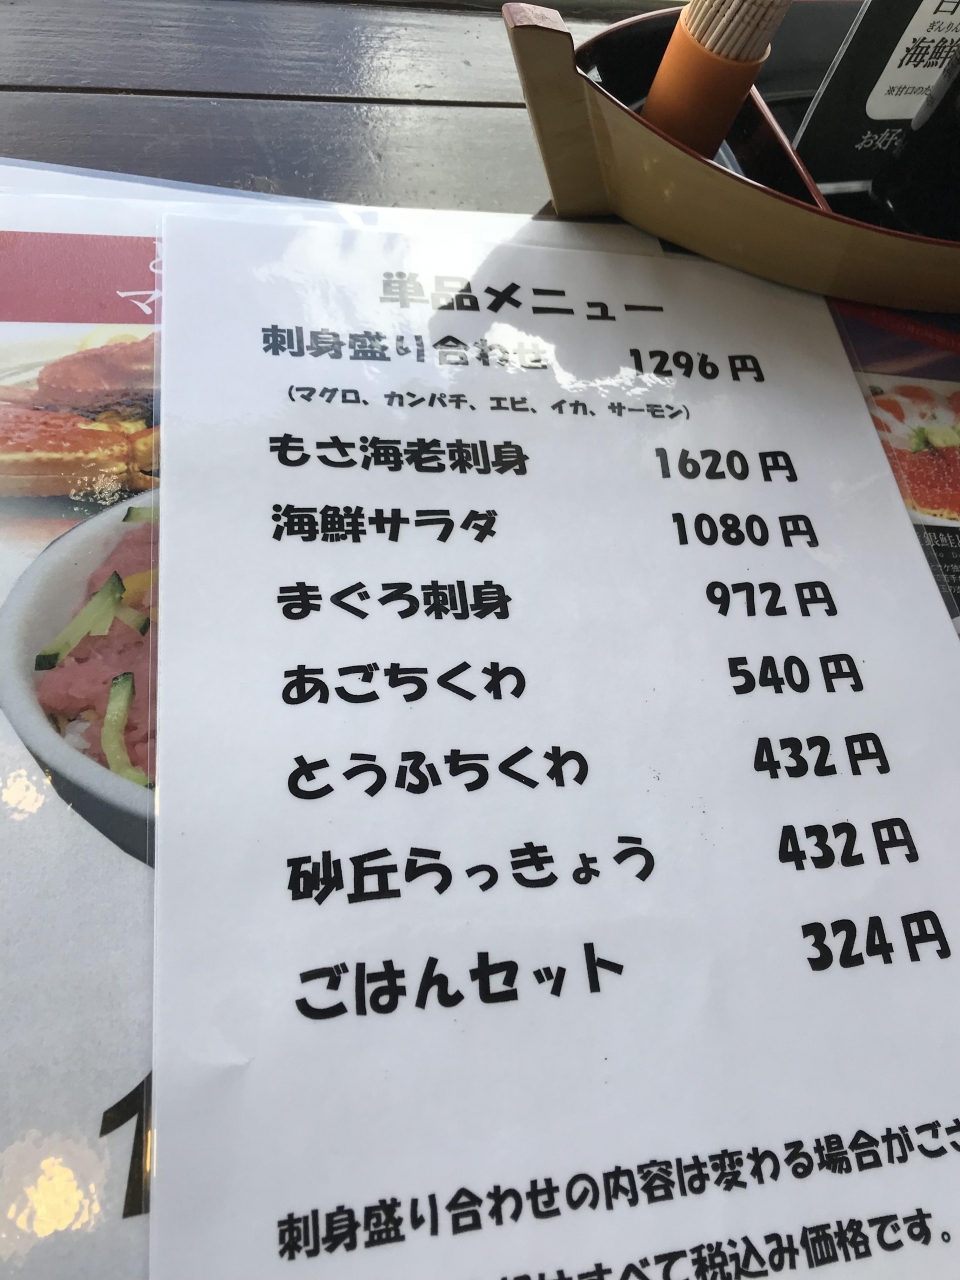 海鮮
お好
単品メニュー
刺身盛り合わせ 1296円
（マグロ、カンパチ、エビ、イカ、サーモン）
もさ海老刺身 1620円
海鮮サラダ 1080円
まぐろ刺身 972円
あごちくわ 540円
とうふちくわ 432円
砂丘らっきょう 432円
ごはんセット 324円
刺身盛り合わせの内容は変わる場合がござ
はすべて税込み価格です。